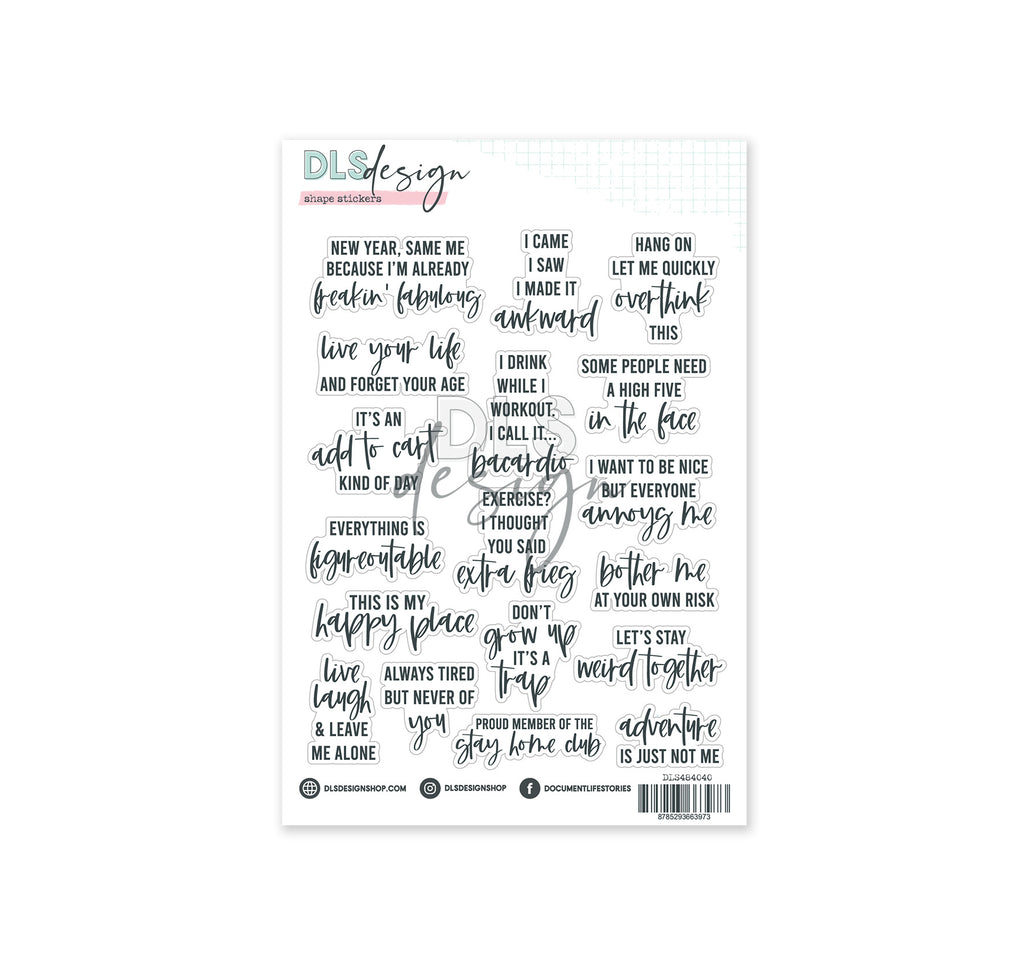 DLS design
shape stickers
NEW YEAR, SAME ME
BECAUSE I'M ALREADY
freakin' fabulous
I CAME
I SAW
I MADE IT
awkward
HANG ON
LET ME QUICKLY
overthink
THIS
live your life
AND FORGET YOUR AGE
I DRINK
WHILE I
WORKOUT.
I CALL IT...
bacardio
SOME PEOPLE NEED
A HIGH FIVE
in the face
IT'S AN
add to cart
KIND OF DAY
DLS
design
I WANT TO BE NICE
BUT EVERYONE
annoys me
EXERCISE?
I THOUGHT
YOU SAID
extra fries
EVERYTHING IS
figureoutable
bother me
AT YOUR OWN RISK
THIS IS MY
happy place
DON'T
grow up
IT'S A
trap
LET'S STAY
weird together
live
laugh
& LEAVE
ME ALONE
ALWAYS TIRED
BUT NEVER OF
you
PROUD MEMBER OF THE
stay home club
adventure
IS JUST NOT ME
DLS484040
DLSDESIGNSHOP.COM
DLSDESIGNSHOP
DOCUMENTLIFESTORIES
8785293663973